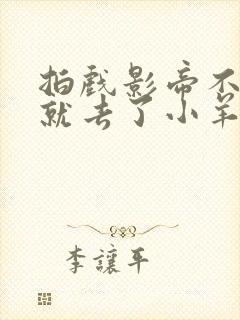 拍戲影帝不
就去了小羊
李讓平